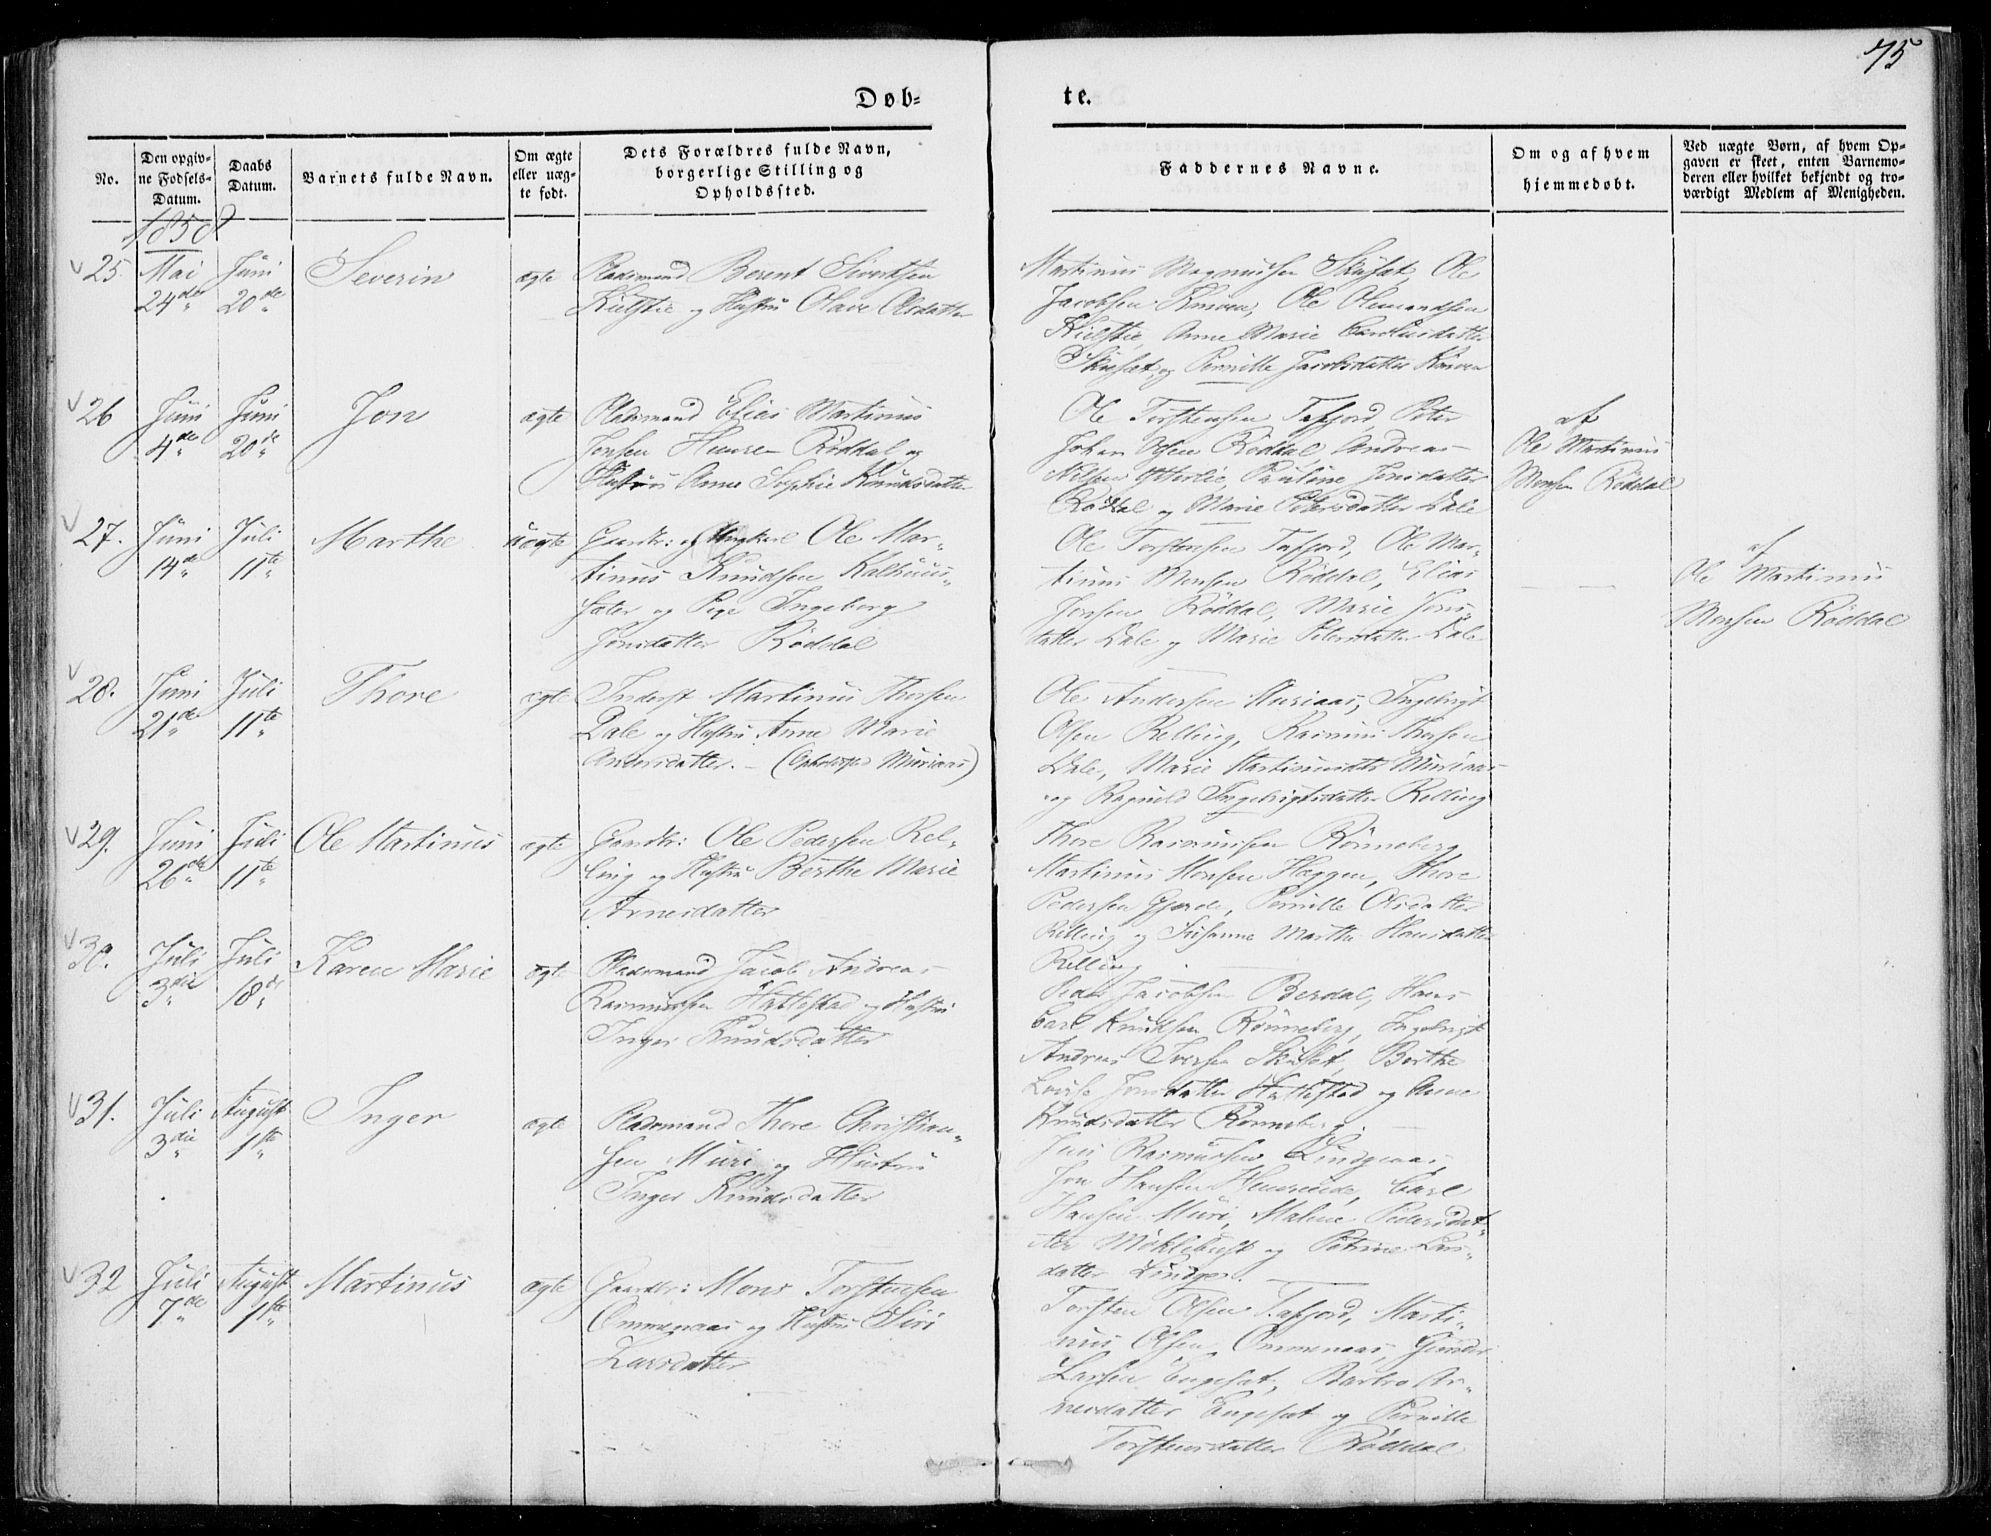 75
Døb-
te.
No.
Den opgiv-
ne Fødsels-
Datum.
Daabs
Datum.
Barnets fulde Navn.
Om ægte
eller uæg-
te født.
Dets Forældres fulde Navn,
borgerlige Stilling og
Opholdssted.
Faddernes Navne.
Om og af hvem
hjemmedøbt.
Ved uægte Børn, af hvem Op-
gaven er skeet, enten Barnemo-
deren eller hvilket bekjendt og tro-
værdigt Medlem af Menigheden.
1858
25. Mai 24de Juni 20de Severin ægte
Pladsmand Berent Sivertsen
Kielstie og Hustru Olave Olsdatter
Martinus Magnussen Skuset, Ole
Jacobsen Kniven, Ole Olemandsen
Kielstie, Anne Marie
Skuset, og Pernille Jacobsdatter
26 Juni 4de Juni 20de Jon ægte
Pladsmand Elias Martinus
Jonsen Røddal og
Hustru Anne Sophie Knudsdatter
Ole Torstensen Tafjord, Peter
Johan Olsen Røddal, Andreas
Nilsen Pauline Jonsdatter
Røddal og Marie Petersdatter Dale
af
Ole Martinus
Monsen Røddal
27. Juni 14de Juli 11te Marthe uægte
Gaardbr: og Ungkarl Ole Mar-
tinus Knudsen Kalhuus-
sæter og Pige Ingeborg
Jonsdatter Røddal
Ole Torstensen Tafjord, Ole Mar-
tinus Monsen Røddal, Elias
Jonsen Røddal, Marie Jons-
datter Dale og Marie Petersdatter Dale
af
Ole Martinus
Monsen Røddal
28. Juni 21de Juli 11te Thore ægte
Inderst Martinus Thorsen
Dale og Hustru Anne Marie
Andersdatter. - (Opholdssted Muriaas)
Ole Andersen Muriaas, Ingebrigt
Olsen Relling, Rasmus Thorsen
Dale, Marie Martinusdatter Muriaas
og Ragnild Ingebrigtsdatter Relling
29. Juni 26de Juli 11te Ole Martinus ægte
Gaardbr: Ole Pedersen Rel-
ling og Hustru Berthe Marie
Arnesdatter
Thore Rasmussen Rønneberg
Martinus Monsen Heggen, Thore
Pedersen Gjerde, Pernille Olsdatter
Relling og Susanne Marthe Hansdatter
Relling
30. Juli 3die Juli 18de Karen Marie ægte
Pladsmand Jacob Andreas
Rasmussen Hattestad og Hustru
Inger Knudsdatter
Peder Jacobsen Berdal, Hans
Carl Knudsen Rønneberg, Ingebrigt
Andreas Iversen Skuset, Berthe
Lovise Jonsdatter Hattestad og Anne
Knudsdatter Rønneberg.
31. Juli 3die August 1ste Inger ægte
Pladsmand Thore Christian-
sen Muri og Hustru
Inger Knudsdatter
Jens Rasmussen Lindgenas
Jon Hansen Carl
Hansen Muri, Malene Pedersdat-
ter Møklebust og Petrine Lars-
datter Lindge.
32 Juli 7de August 1ste Martinus ægte
Gaardbr: Mons Torstensen
Ommenaas og Hustru Siri
Larsdatter
Torsten Olsen Tafjord, Marti-
nus Olsen Ommenaas, Gunder
Larsen Engeset, Barbro Ar-
nesdatter Engeset og Pernille
Torstensdatter Røddal